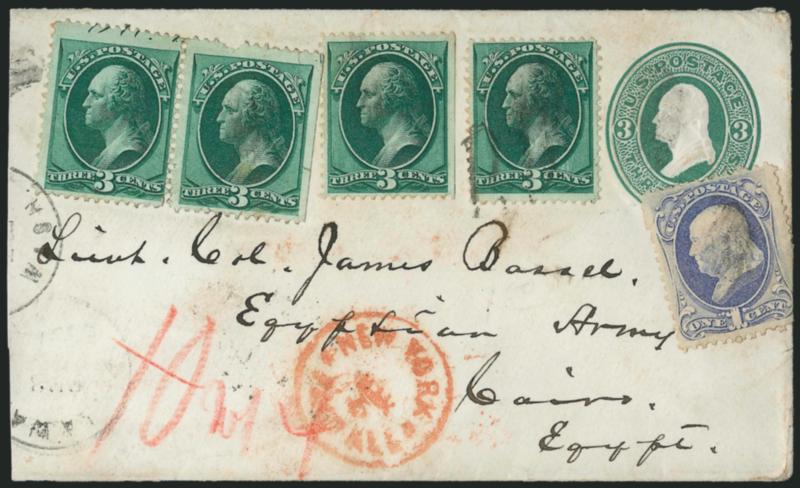 U.S. POSTAGE
THREE 3 CENTS
U.S. POSTAGE
THREE 3 CENTS
U.S. POSTAGE
THREE 3 CENTS
U.S. POSTAGE
THREE 3 CENTS
U.S. POSTAGE
3 3
U.S. POSTAGE
ONE 1 CENT
Lieut. Col. James Bassel.
Egyptian Army
Cairo.
Egypt.
NEW YORK
ALL
WASH